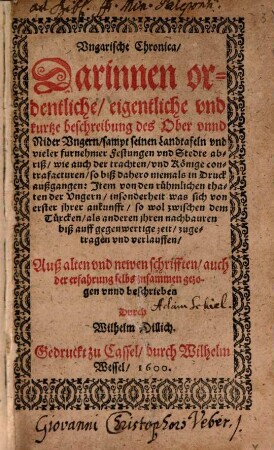 ad Bibl. ff. Min.
Vngarische Chronica/
Darinnen or-
dentliche/ eigentliche vnd
kurtze beschreibung des Ober vnnd
Nider Vngern/ sampt seinen Landtafeln vnd
vieler furnehmer Festungen vnd Stedte ab-
riß/ wie auch der trachten/ vnd Könige con-
trafacturen/ so biß dahero niemals in Druck
außgangen: Item von den rühmlichen tha-
ten der Vngern/ insonderheit was sich von
erster ihrer ankunfft/ so wol zwischen dem
Türcken/ als anderen ihren nachbauren
biß auff gegenwertige zeit/ zuge-
tragen vnd verlauffen/
Auß alten vnd newen schrifften/ auch
der erfahrung selbs zusammen gezo-
gen vnnd beschrieben
Adam Schiel.
Durch
Wilhelm Dilich.
Gedruckt zu Cassel/ durch Wilhelm
Wessel/ 1600.
Giovanni Christophoro Weber./